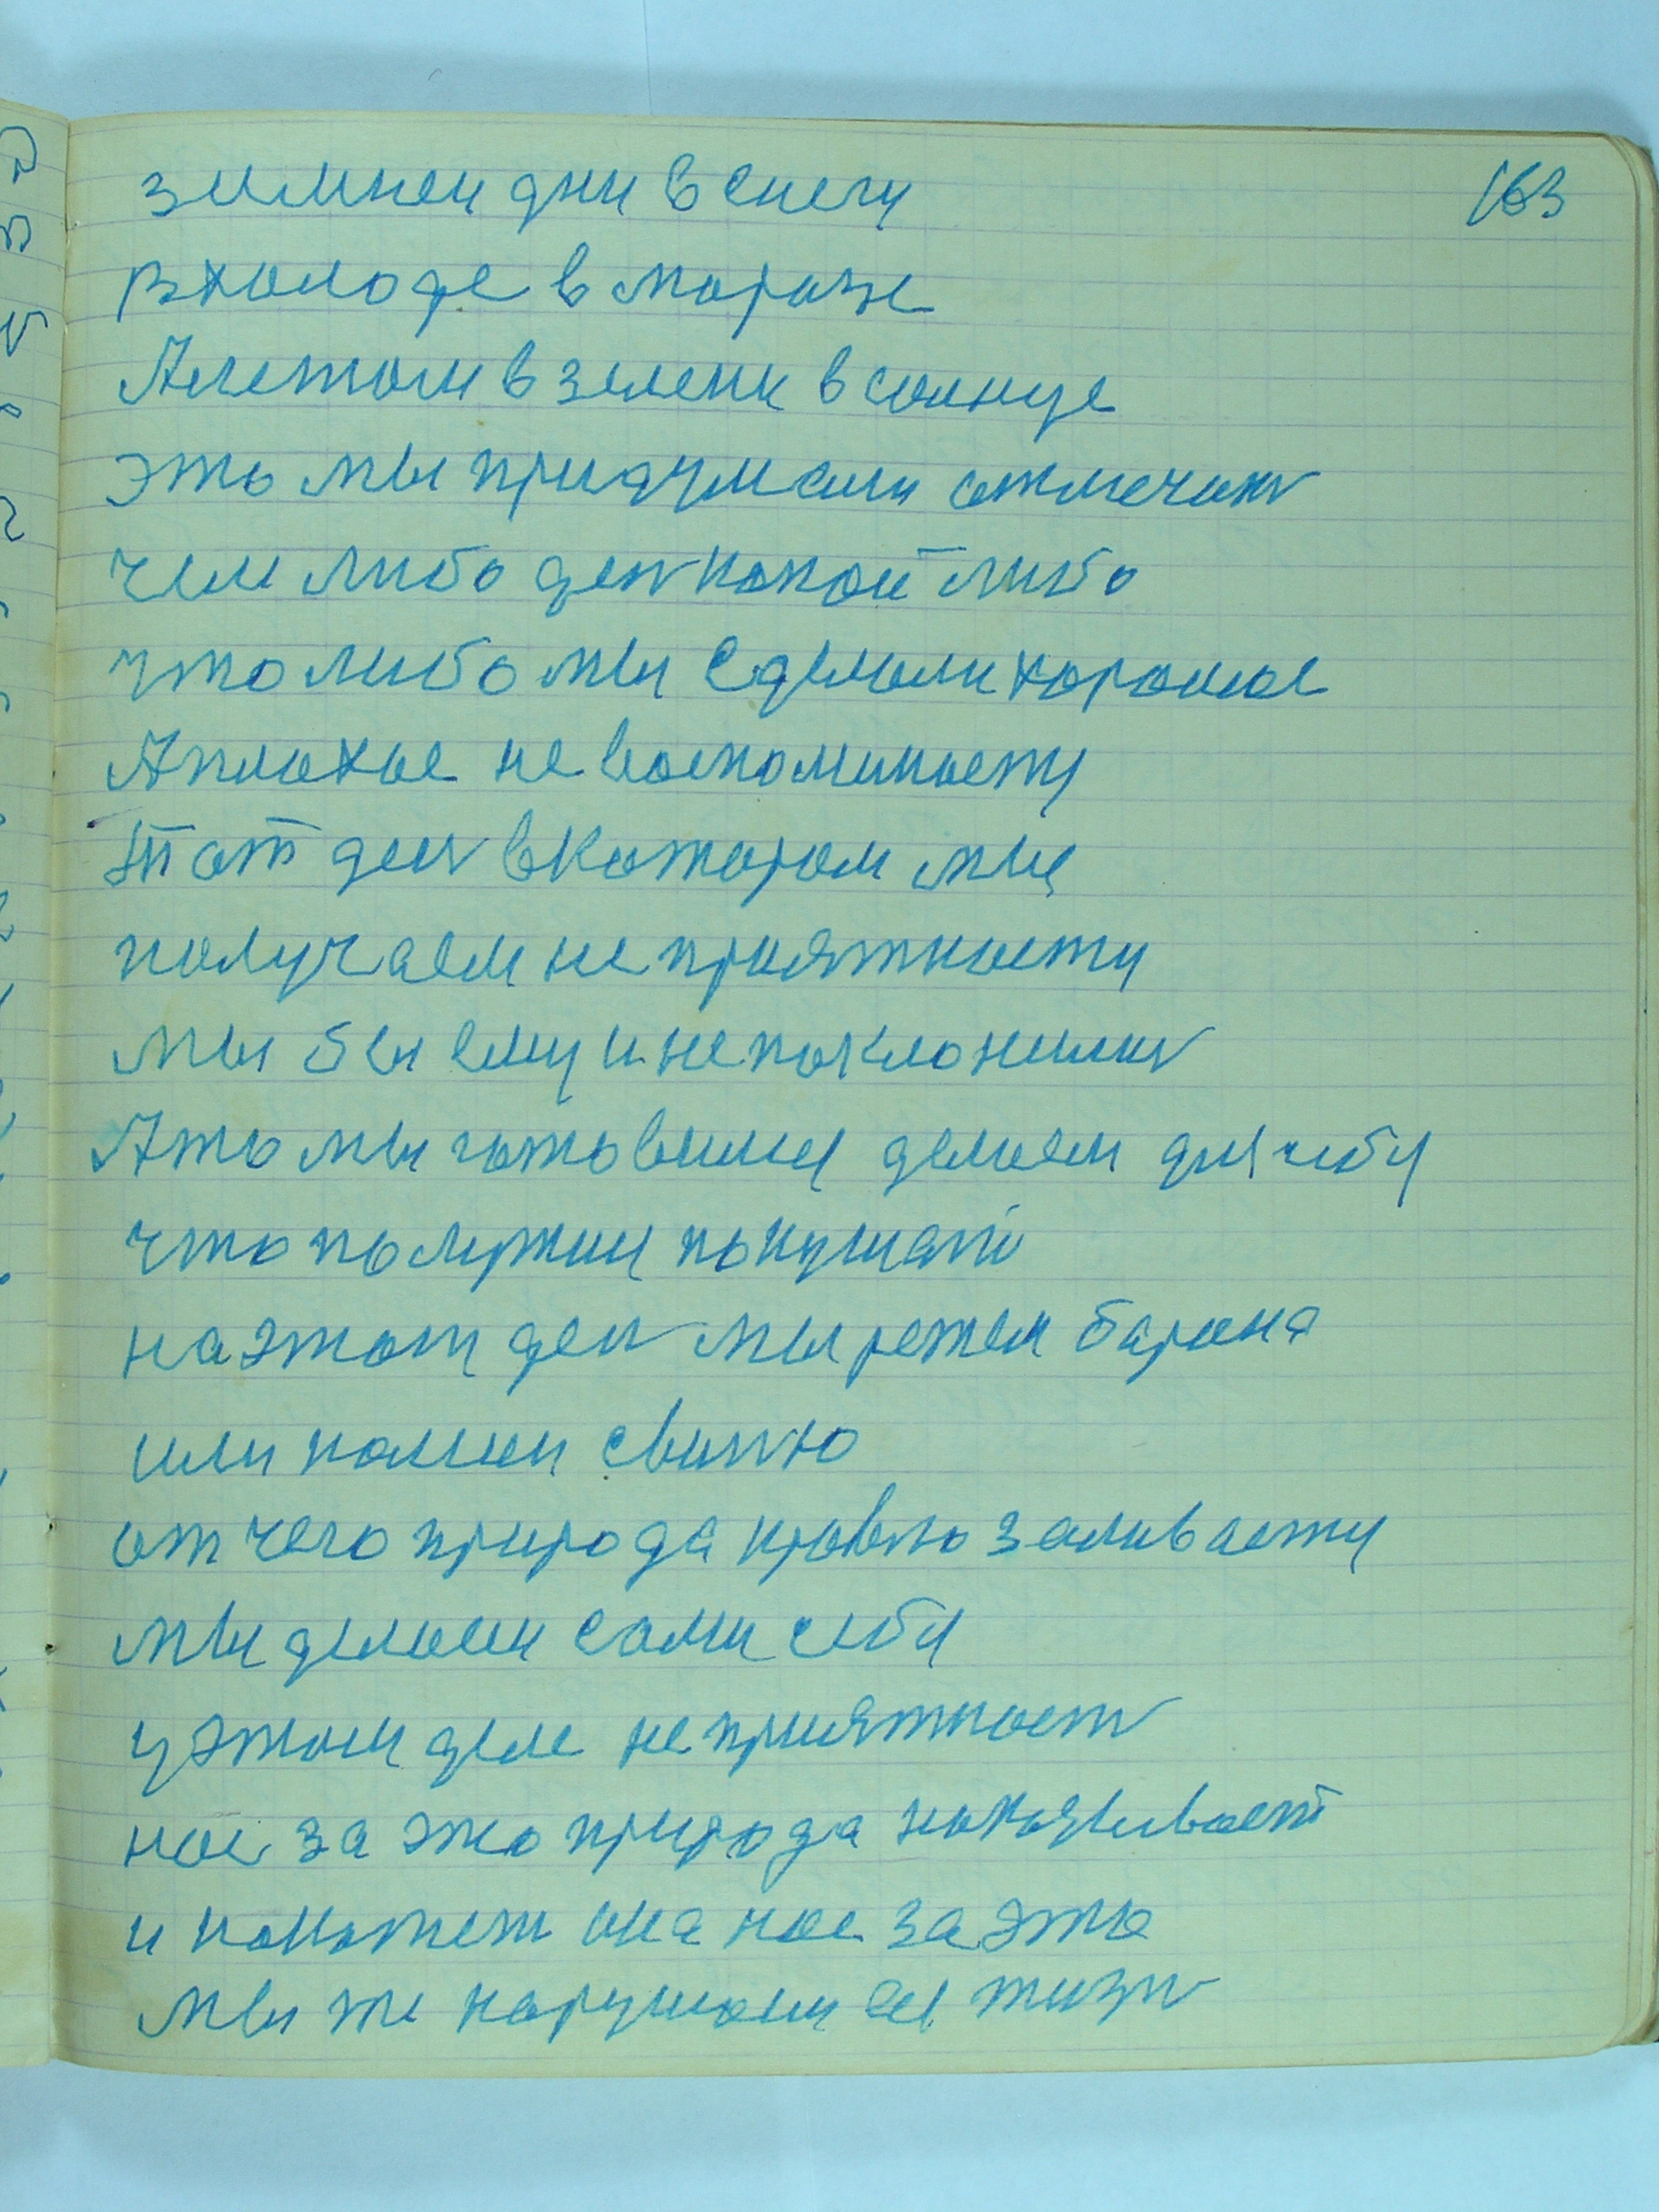 163
зимнеи дни в снегу
в холоде в морозе
А летом в зелени в солнце
это мы придумали отмечать
чем либо ден какой либо
что либо мы сделали хорошое
А плохое не воспоминаетц
тот ден в котором мы
получаем не приятности
мы бы ему и не поклонилис
А то мы готовимц делаем для себя
что полутши покушать
на этот ден мы режем барана
или колем свиню
от чего природа кровю заливаетц
мы делаем сами себя
у этом деле неприятност
нас за это природа наказывает
и накажет она нас за это
мы же нарушаем ее жизн